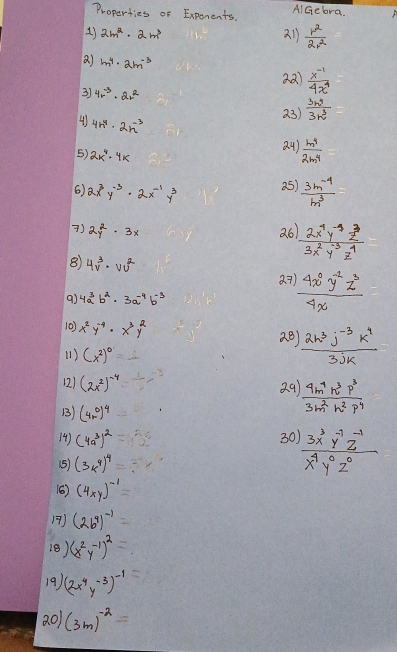 Properties of Exponents.
AlGebra.
1) 2m² · 2m³
2) m⁴ · 2m⁻³
3) 4r⁻³ · 2r²
4) 4n⁴ · 2n⁻³
5) 2k⁴ · 4k
6) 2x³ y⁻³ · 2x⁻¹ y³
7) 2y² · 3x
8) 4v³ · vu²
9) 4a³ b² · 3a⁻⁴ b⁻³
10) x² y⁻⁴ · x³ y²
11) (x²)⁰ =
12) (2x²)⁻⁴ =
13) (4r⁰)⁴ =
14) (4a³)² =
15) (3k⁴)⁴ =
16) (4xy)⁻¹ =
17) (2b⁴)⁻¹ =
18) (x² y⁻¹)² =
19) (2x⁴ y⁻³)⁻¹ =
20) (3m)⁻² =
21) r² / 2r² =
22) x⁻¹ / 4x⁴ =
23) 3n⁴ / 3n³ =
24) m⁴ / 2m⁴ =
25) 3m⁻⁴ / m³ =
26) 2x⁴ y⁻⁴ z³ / 3x² y⁻³ z⁴ =
27) 4x⁰ y⁻² z³ / 4x =
28) 2h³ j⁻³ k⁴ / 3jk =
29) 4m⁴ n³ p³ / 3m² n² p⁴ =
30) 3x³ y⁻¹ z⁻¹ / x⁴ y⁰ z⁰ =